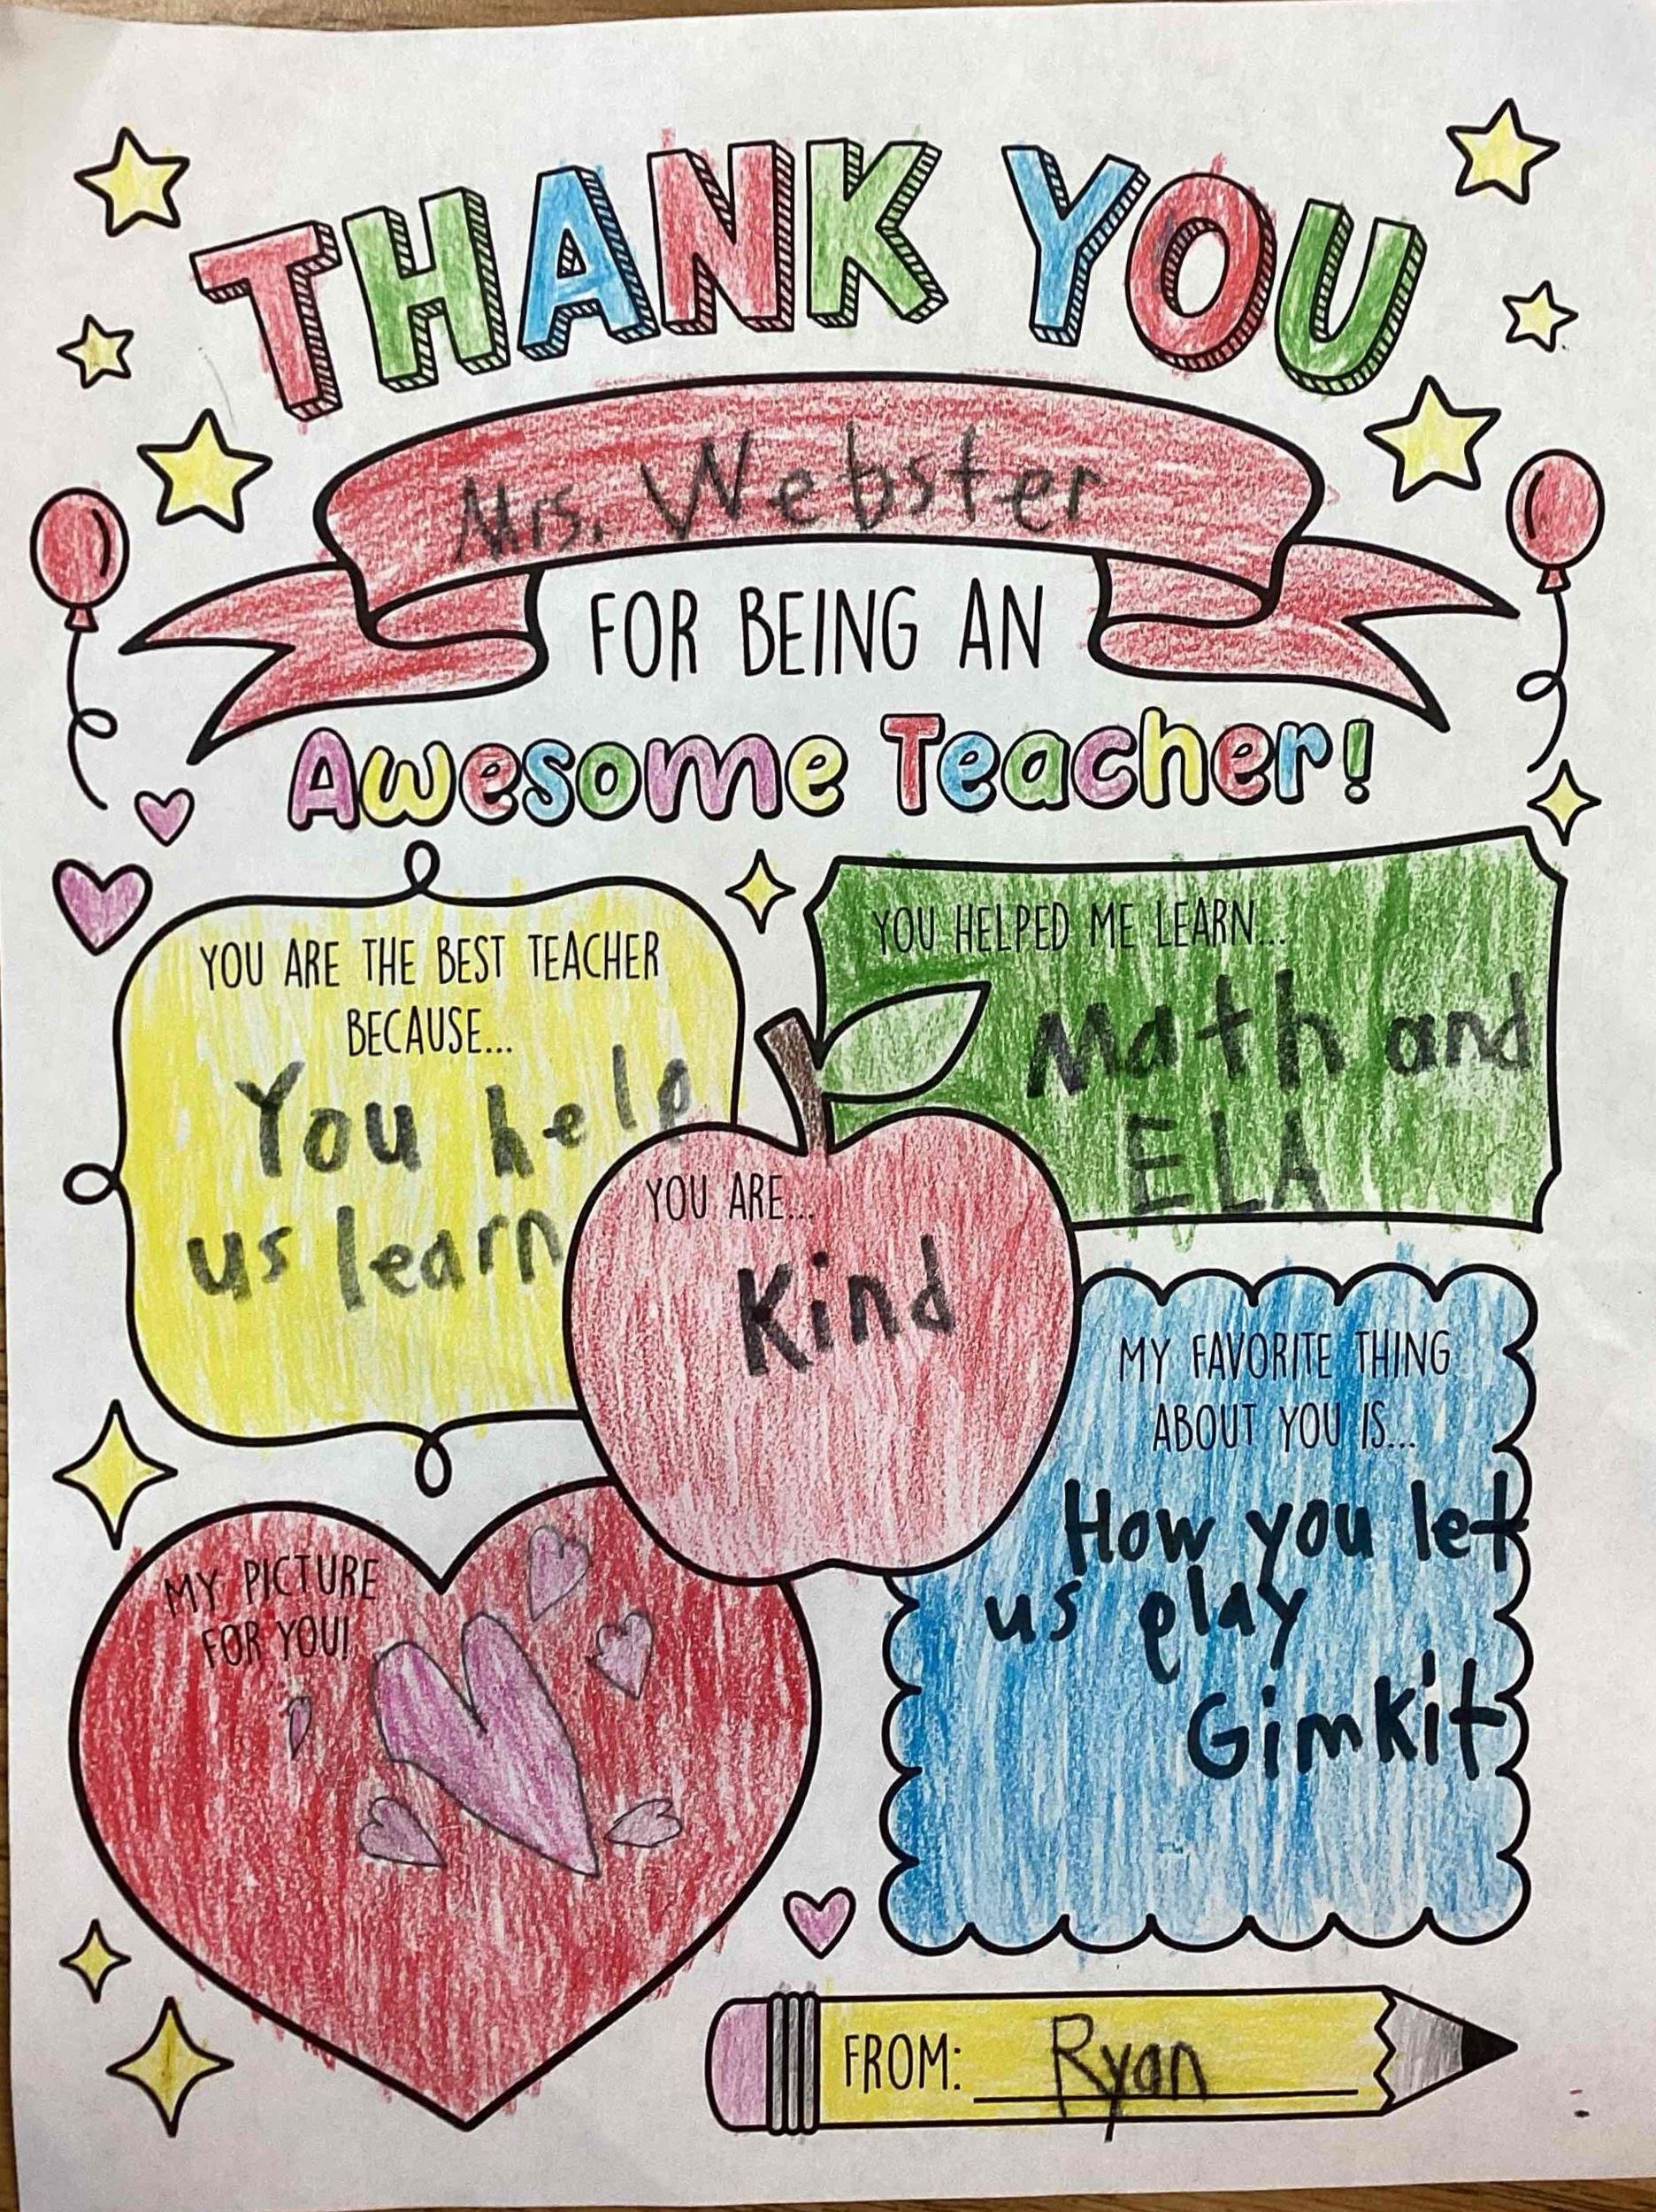 THANK YOU
Mrs. Webster
FOR BEING AN
Awesome Teacher!
YOU ARE THE BEST TEACHER
BECAUSE...
You help
us learn
YOU HELPED ME LEARN...
Math and
ELA
YOU ARE...
Kind
MY FAVORITE THING
ABOUT YOU IS...
How you let
us play
Gimkit
MY PICTURE
FOR YOU!
FROM: Ryan